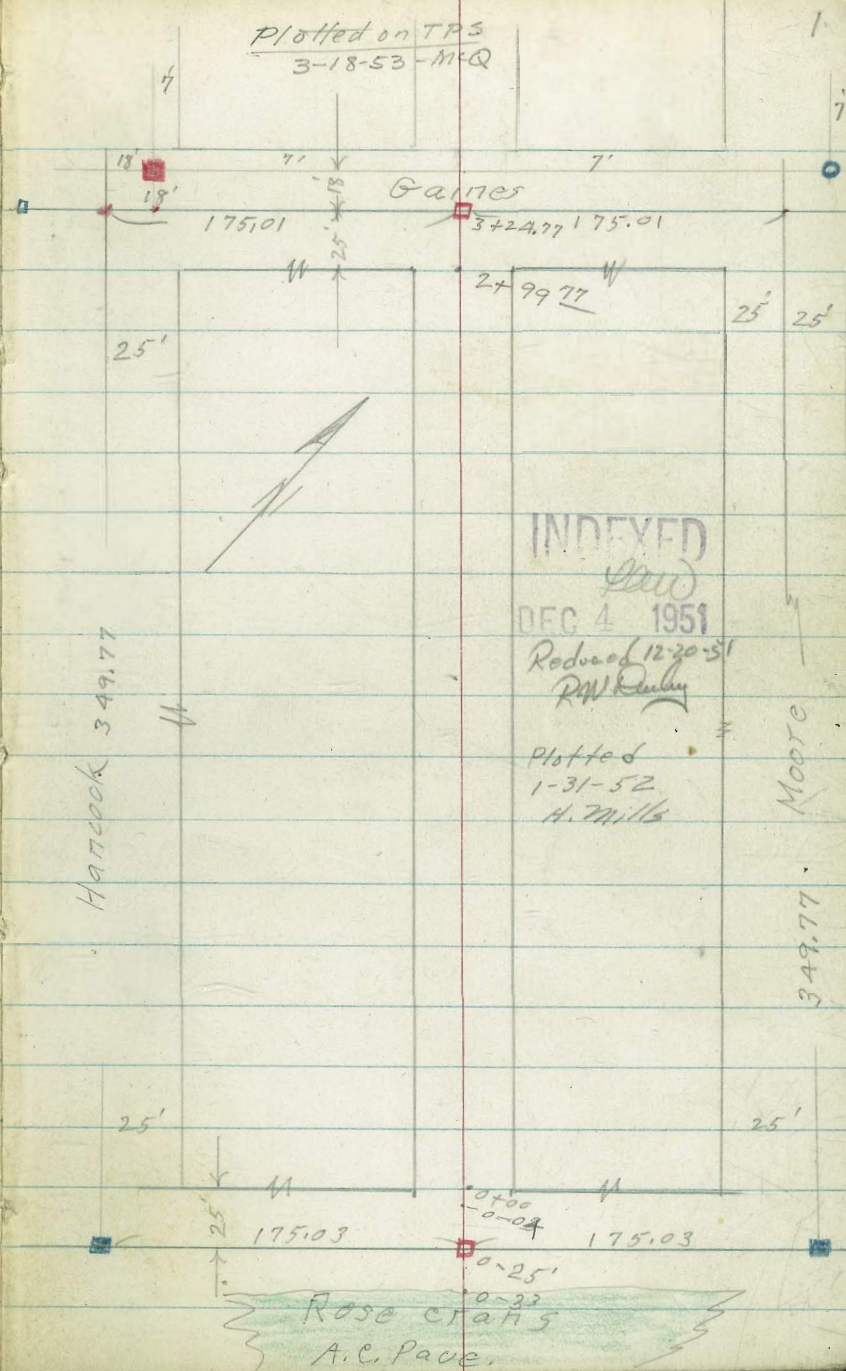 1.
Plotted on TPS
3-18-53-McQ
7'
7'
18'
7'
7'
18'
18'
Gaines
175.01
3+24.77 175.01
25'
2+99 77
25' 25'
25'
INDEXED
DEC 4 1951
Reduced 12-20-51
Hancock 349.77
Plotted
1-31-52
H. Mills
Moore
349.77
25'
25'
0+00
-0-04
25'
175.03
175.03
0-25'
0-33
Rose crans
A.C. Pave.